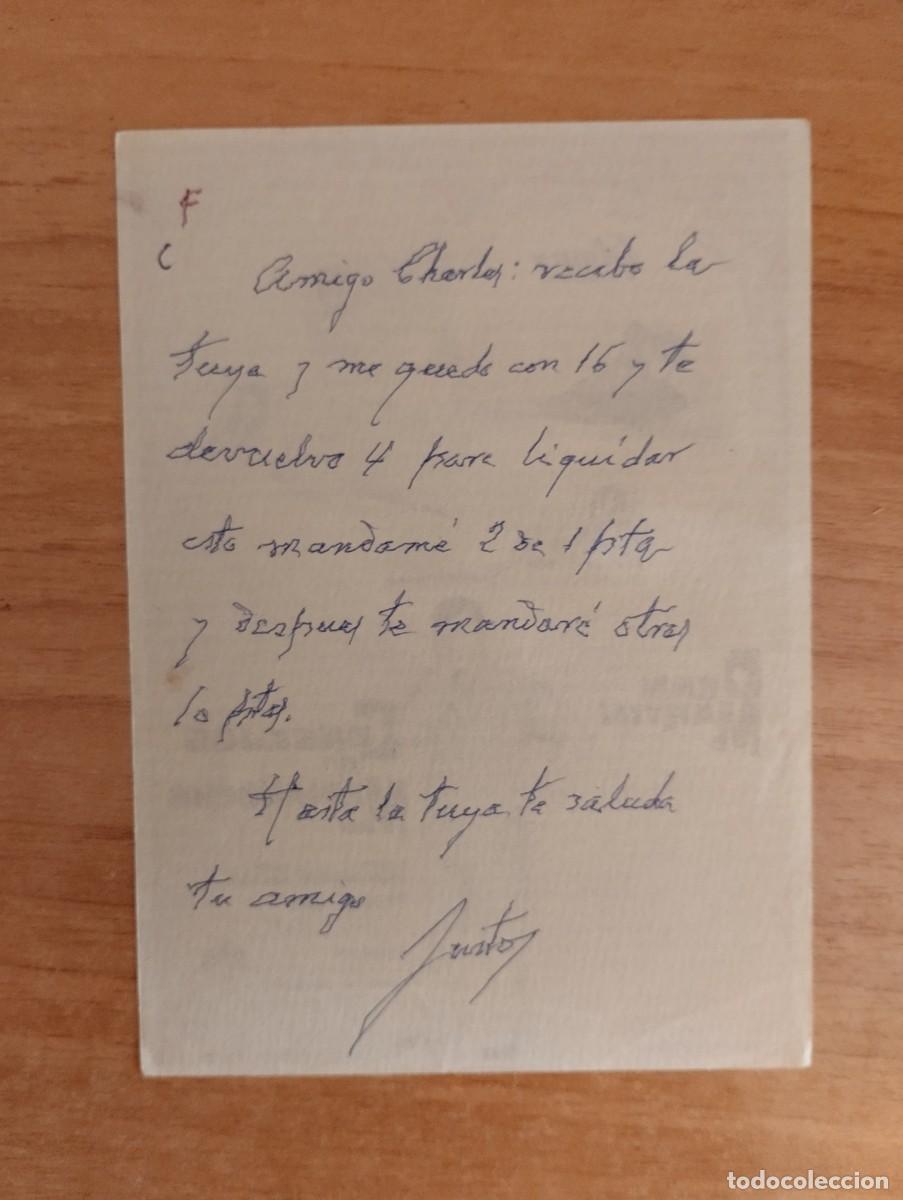 F
C
Amigo Charles: recibo la
tuya y me quedo con 16 y te
devuelvo 4 para liquidar
esto mandamé 2 de 1 pta
y despues te mandaré otras
10 ptas.
Hasta la tuya te saluda
tu amigo
Justo
todocoleccion